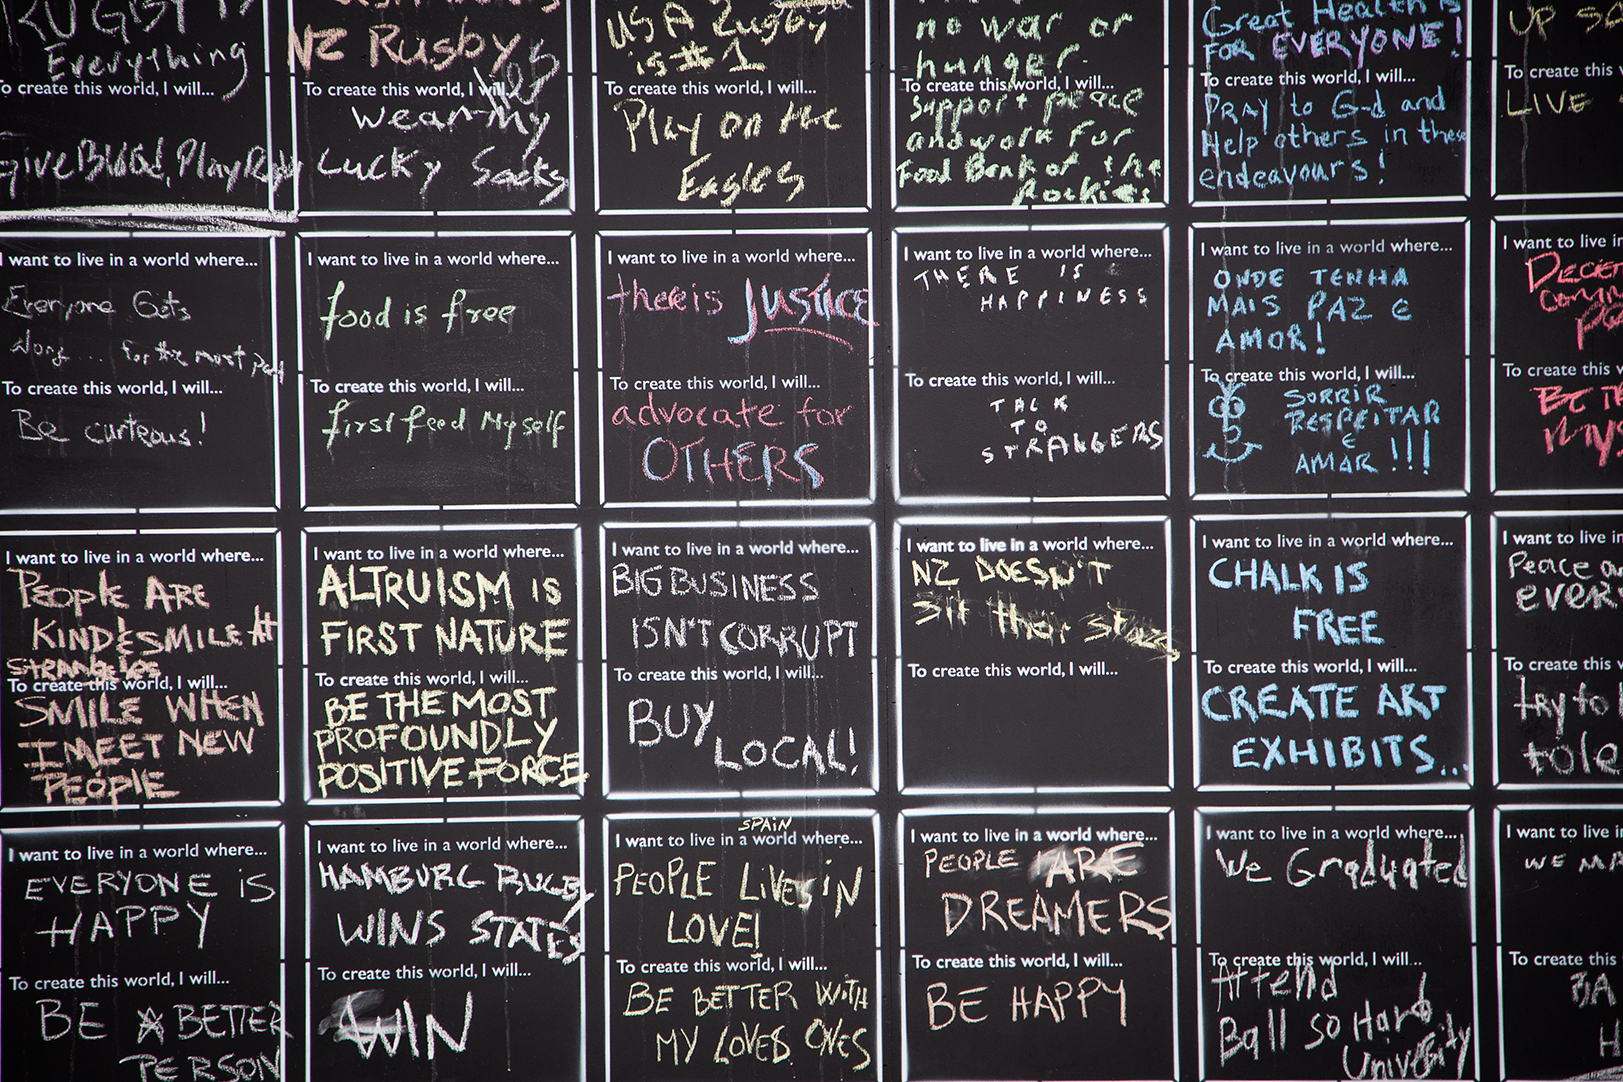 Everything
To create this world, I will...
Give Blood, Play Rugby
NZ Rugby
To create this world, I will...
wear my
Lucky Socks
USA Rugby
is #1
To create this world, I will...
Play on the
Eagles
no war or
hunger.
To create this world, I will...
support peace
and work for
Food Bank of the
Rockies
Great Health is
FOR EVERYONE!
To create this world, I will...
PRAY to G-d and
Help others in these
endeavours!
UP
To create this
LIVE
I want to live in a world where...
Everyone Gets
Along... for the most part
To create this world, I will...
Be curteous!
I want to live in a world where...
food is free
To create this world, I will...
first feed Myself
I want to live in a world where...
there is JUSTICE
To create this world, I will...
advocate for
OTHERS
I want to live in a world where...
THERE IS
HAPPINESS
To create this world, I will...
TALK
TO
STRANGERS
I want to live in a world where...
ONDE TENHA
MAIS PAZ E
AMOR!
To create this world, I will...
SORRIR
RESPEITAR
E
AMAR!!!
I want to live in
To create this
BE
I want to live in a world where...
PEOPLE ARE
KIND & SMILE AT
STRANGERS
To create this world, I will...
SMILE WHEN
I MEET NEW
PEOPLE
I want to live in a world where...
ALTRUISM IS
FIRST NATURE
To create this world, I will...
BE THE MOST
PROFOUNDLY
POSITIVE FORCE
I want to live in a world where...
BIG BUSINESS
ISN'T CORRUPT
To create this world, I will...
BUY
LOCAL!
I want to live in a world where...
NZ DOESN'T
their
To create this world, I will...
I want to live in a world where...
CHALK IS
FREE
To create this world, I will...
CREATE ART
EXHIBITS...
I want to live in
Peace
ever
To create this
try to
tole
I want to live in a world where...
EVERYONE iS
HAPPY
To create this world, I will...
BE A BETTER
PERSON
I want to live in a world where...
HAMBURG RUGBY
WINS STATES
To create this world, I will...
WIN
SPAiN
I want to live in a world where...
PEOPLE LiVES iN
LOVE!
To create this world, I will...
BE BETTER WiTH
MY LOVES ONES
I want to live in a world where...
PEOPLE ARE
DREAMERS
To create this world, I will...
BE HAPPY
I want to live in a world where...
We Graduated
To create this world, I will...
Attend
Ball so Hard
University
I want to live in
WE
To create this